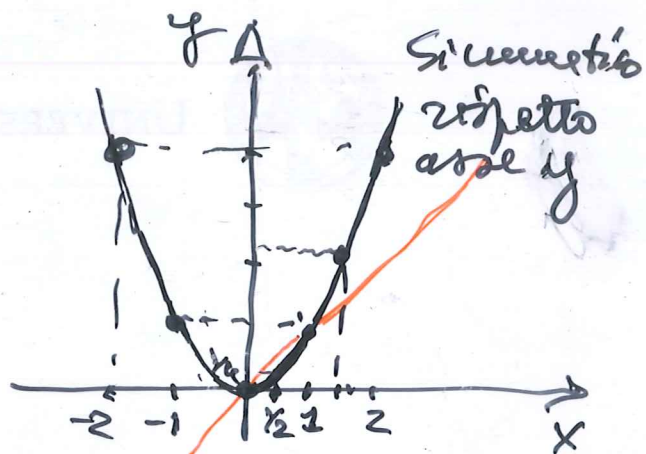 y
Simmetrico
rispetto
asse y
-2 -1 ½ 1 2
x